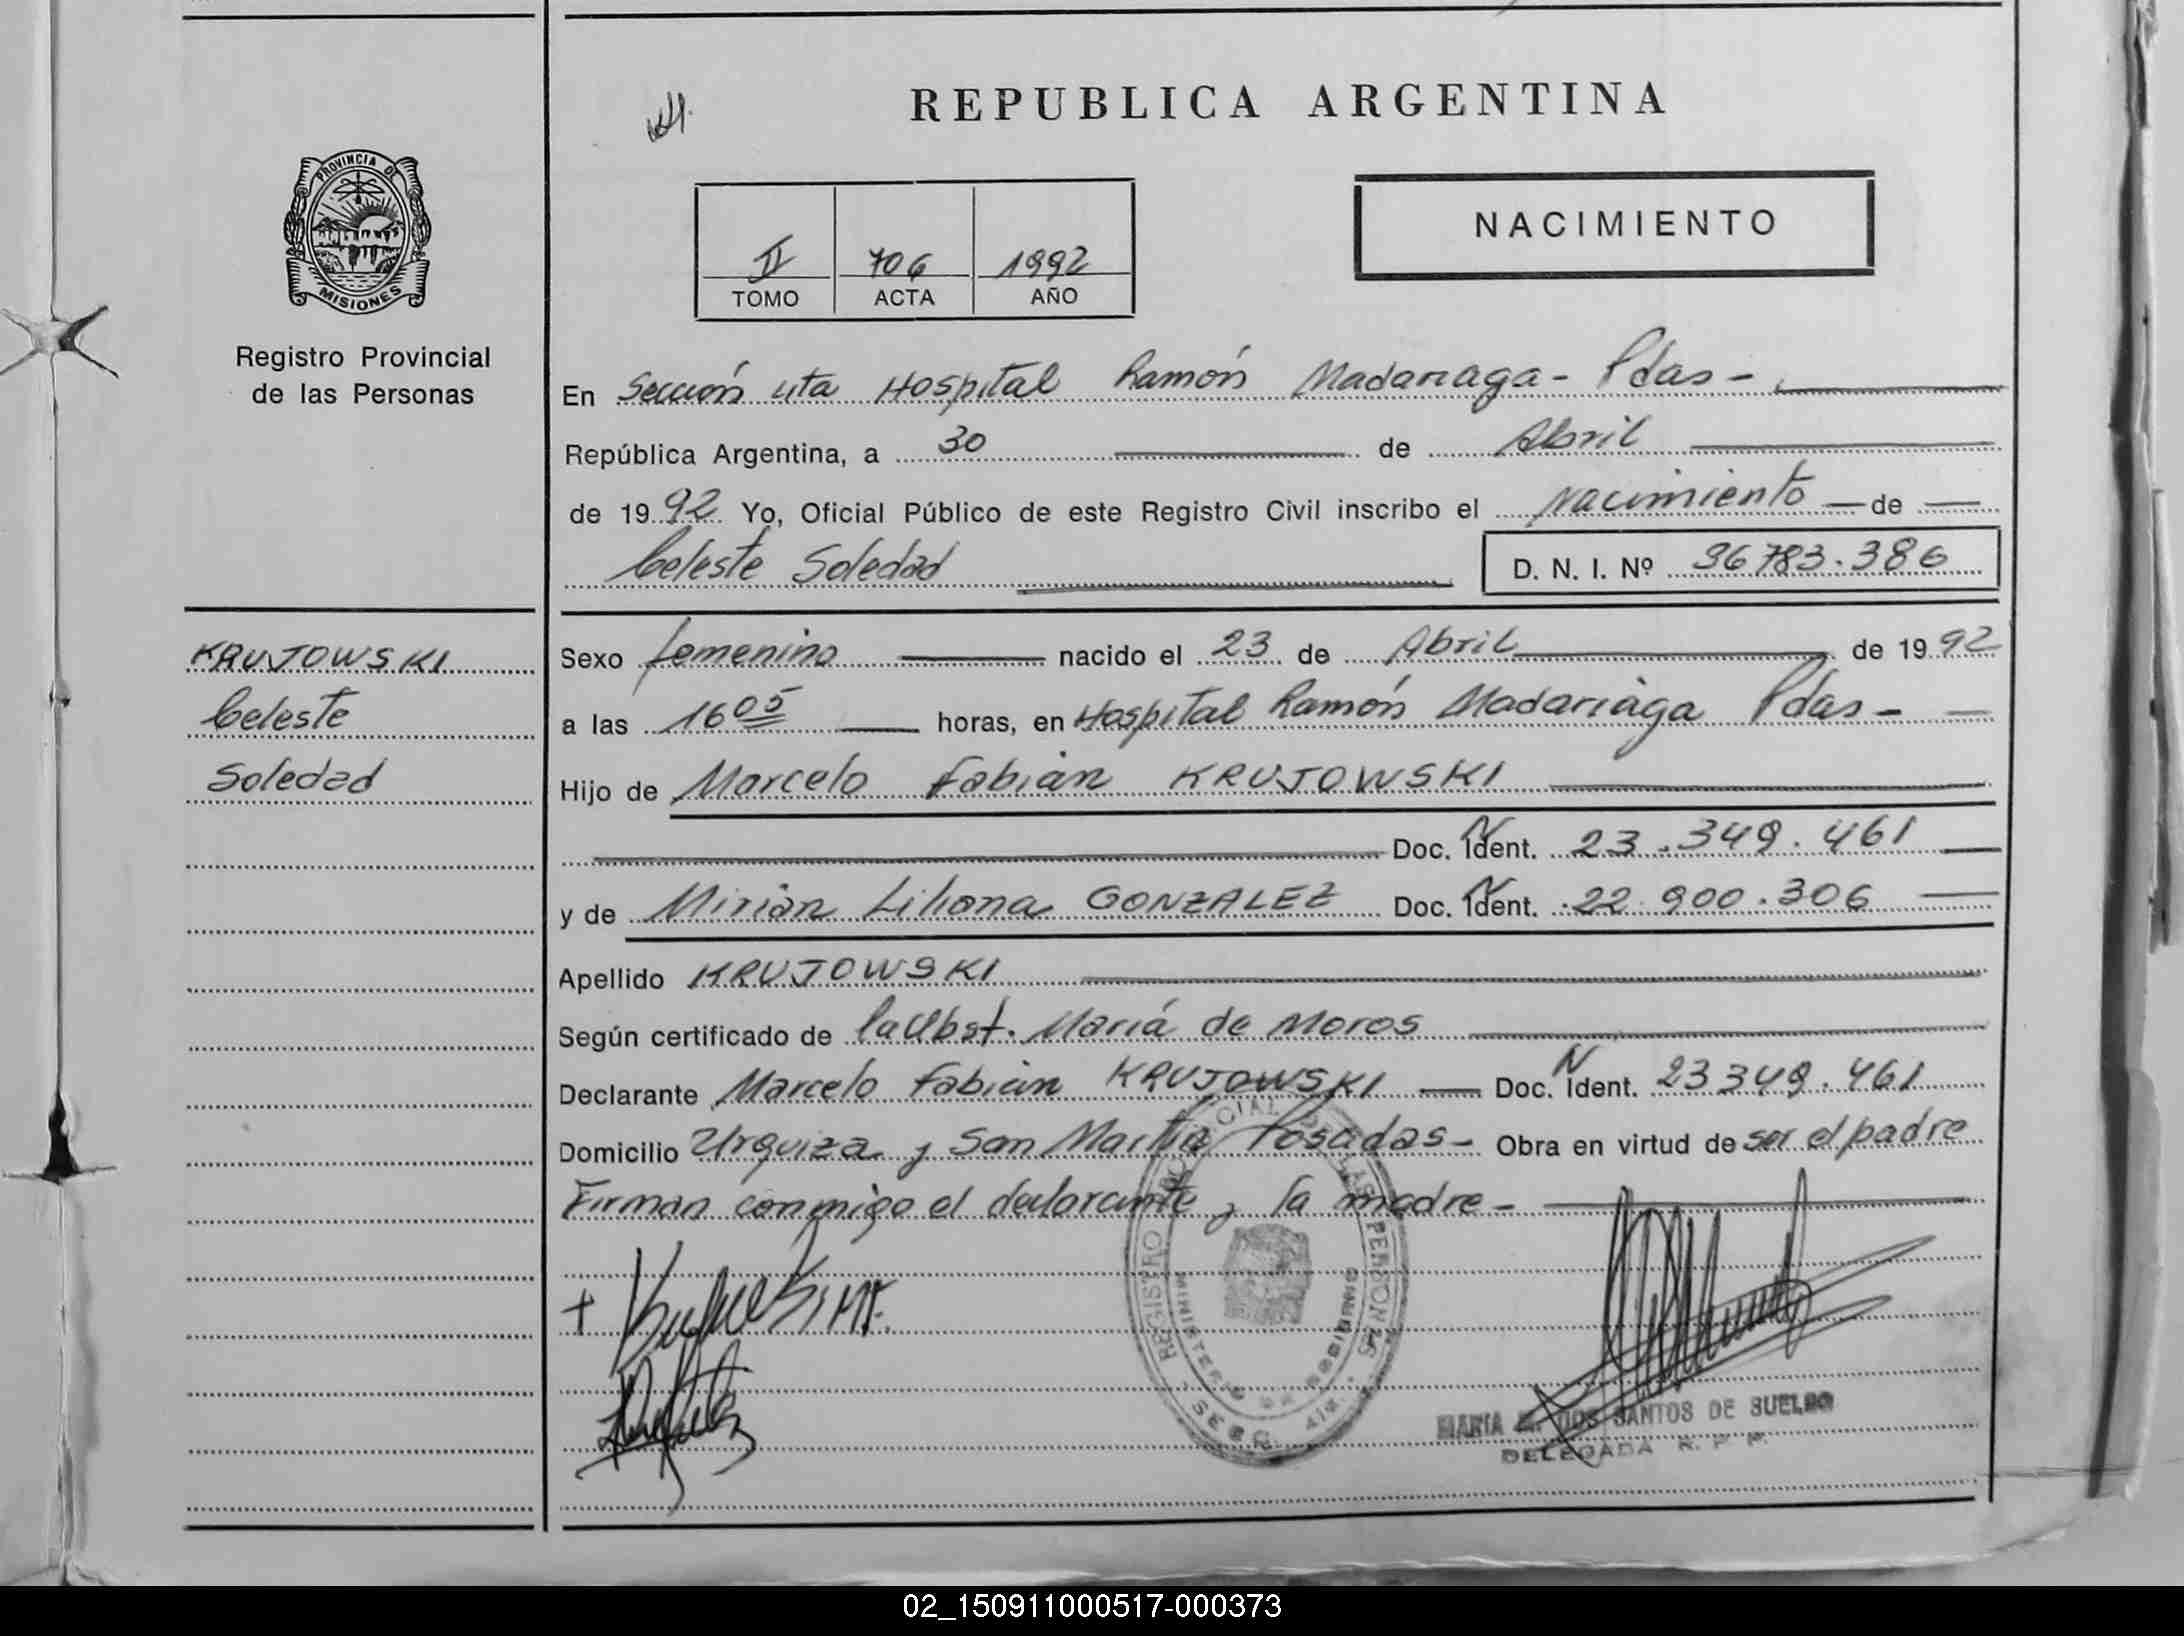 REPUBLICA ARGENTINA
PROVINCIA DE
MISIONES
Registro Provincial
de las Personas
NACIMIENTO
II 706 1992
TOMO ACTA AÑO
En Sección 4ta Hospital Ramón Madariaga - Pdas -
República Argentina, a 30 de Abril
de 1992 Yo, Oficial Público de este Registro Civil inscribo el Nacimiento de
Celeste Soledad
D. N. I. Nº 36783.386
KRUJOWSKI
Celeste
Soledad
Sexo femenino nacido el 23 de Abril de 1992
a las 16 05 horas, en Hospital Ramón Madariaga Pdas -
Hijo de Marcelo Fabián KRUJOWSKI
Doc. N Ident. 23.349.461
y de Mirian Liliana GONZALEZ Doc. N Ident. 22.900.306
Apellido KRUJOWSKI
Según certificado de la Obst. María de Moros
Declarante Marcelo Fabián KRUJOWSKI Doc. N Ident. 23349.461
Domicilio Urquiza y San Martín Posadas - Obra en virtud de ser el padre
Firman conmigo el declarante y la madre -
REGISTRO PROVINCIAL DE LAS PERSONAS
MINISTERIO DE GOBIERNO
SECC. 4ta.
MARIA DOS SANTOS DE
DELEGADA R. P. P.
02_150911000517-000373